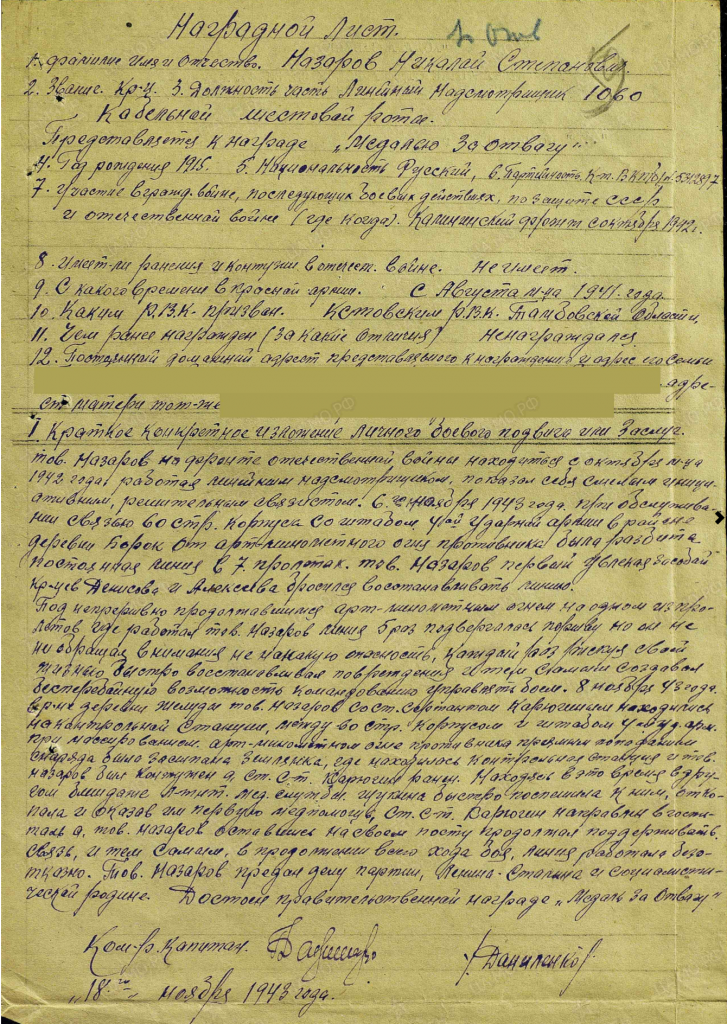 Наградной Лист.
1. Фамилие Имя и Отчество. Назаров Николай Степанович.
2. Звание. Кр-ц. 3. Должность часть Линейный Надсмотрщик 1060
Кабельной шестовой роты.
Представляется к награде „Медалью За Отвагу"
4. Год рождения 1915. 5. Национальность Русский, 6. Партийность К-т. ВКП(б)
7. Участие в гражд. войне, последующих боевых действиях, по защите СССР
и отечественной войне (где когда). Калининский фронт с октября 1942 г.
8. Имеет-ли ранения и контузии в отечест. войне. Не имеет.
9. С какого времени в красной армии. С Августа м-ца 1941 года
10. Каким Р.В.К. призван. Р.В.К. Тамбовской Области,
11. Чем ранее награжден (За какие отличия) Ненаграждался
12. Постоянный домашний адрест представляемого к награждению и адрес его семьи
адре-
ст матери тот-же
I. Краткое конкретное изложение личного боевого подвига или Заслуг.
тов. Назаров на фронте отечественной войны находиться с октября м-ца
1942 года работая линейным надсмотрщиком, показал себя смелым иници-
ативным, решительным связистом. 6 ноября 1943 года. При обслужива-
нии связью 60 стр. Корпуса со штабом 4ой ударной армии в районе
деревни Борок от арт-минометного огня противника была разбита
постоянная линия в 7 пролетах. тов. Назаров первый увлекая за собой
кр-цев Денисова и Алексеева бросился восстанавливать линию.
Под непрерывно продолжавшимся арт-минометным огнем на одном из про-
летов где работал тов. Назаров линия 5 раз подвергалась порыву но он не
обращая внимания не на какую опасность, каждый раз рискуя своей
жизнью быстро восстанавливал повреждения и тем самым создавал
бесперебойную возможность командованию управлять боем. 8 ноября 43 года.
в р-не деревни тов. Назаров со ст. Сержантом Карюгиным находились
на контрольной станции, между 60 стр. Корпусом и штабом 4 уд. арм.
при массированном арт-минометном огне противника прямым попаданием
снаряда была засыпана землянка, где находилась контрольная станция и тов.
Назаров был контужен а, ст. с-т. Карюгин ранен. Находясь в это время в дру-
гом блиндаже л-т мед. службы. Щукина быстро поспешила к ним, отко-
пала и оказав им первую медпомощь, ст. с-т. Карюгин направлен в госпи-
таль а, тов. Назаров оставшись на своем посту продолжал поддерживать
связь, и тем самым, в продолжении всего хода боя, линия работала безо-
тказно. Тов. Назаров предан делу партии, Ленина-Сталина и социалисти-
ческой родине. Достоен правительственной награде „Медаль За Отвагу"
Ком-р. Капитан
/Даниленко/
„18го" ноября 1943 года.